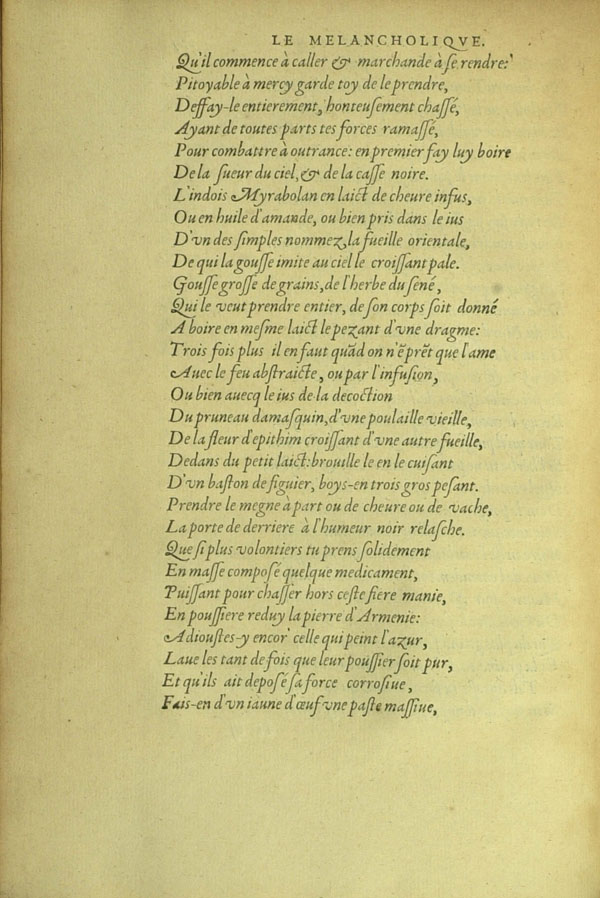 LE MELANCHOLIQVE.
Qu'il commence à caller & marchande à ſe rendre:
Pitoyable à mercy garde toy de le prendre,
Deffay-le entierement, honteuſement chaſſé,
Ayant de toutes parts tes forces ramaſſé,
Pour combattre à outrance: en premier fay luy boire
De la ſueur du ciel, & de la caſſe noire.
L'indois Myrabolan en laict de cheure infus,
Ou en huile d'amande, ou bien pris dans le ius
D'vn des ſimples nommez, la fueille orientale,
De qui la gouſſe imite au ciel le croiſſant pale.
Gouſſe groſſe de grains, de l'herbe du ſené,
Qui le veut prendre entier, de ſon corps ſoit donné
A boire en meſme laict le pezant d'vne dragme:
Trois fois plus il en faut quãd on n'ẽprẽt que l'ame
Auec le feu abſtraicte, ou par l'infuſion,
Ou bien auecq le ius de la decoction
Du pruneau damaſquin, d'vne poulaille vieille,
De la fleur d'epithim croiſſant d'vne autre fueille,
Dedans du petit laict: brouille le en le cuiſant
D'vn baſton de figuier, boys-en trois gros peſant.
Prendre le megne à part ou de cheure ou de vache,
La porte de derriere à l'humeur noir relaſche.
Que ſi plus volontiers tu prens ſolidement
En maſſe compoſé quelque medicament,
Puiſſant pour chaſſer hors ceſte fiere manie,
En pouſſiere reduy la pierre d'Armenie:
Adiouſtes-y encor' celle qui peint l'azur,
Laue les tant de fois que leur pouſſier ſoit pur,
Et qu'ils ait depoſé ſa force corroſiue,
Fais-en d'vn iaune d'œuf vne paſte maſſiue,